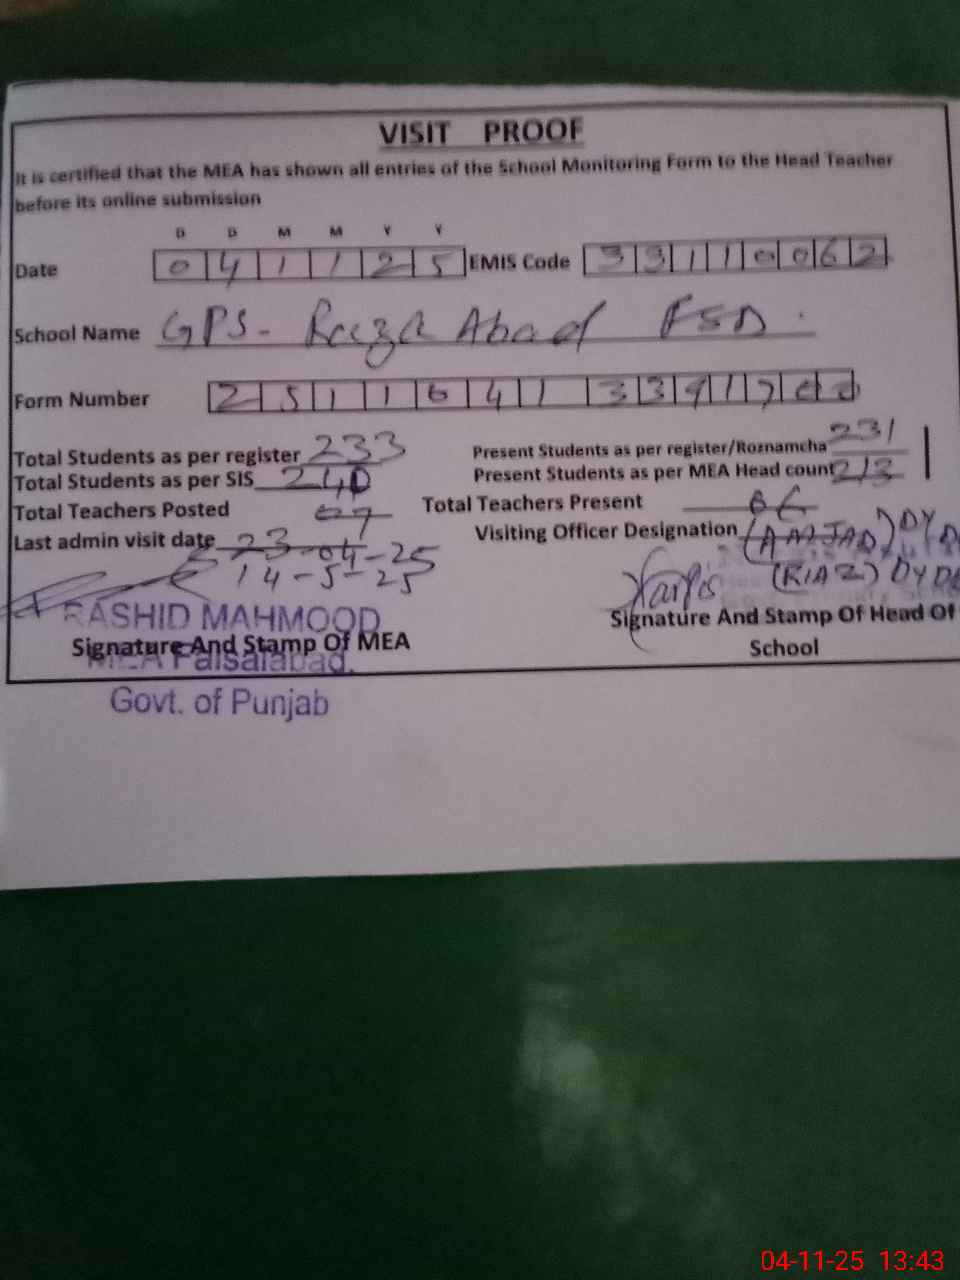 VISIT PROOF
It is certified that the MEA has shown all entries of the School Monitoring Form to the Head Teacher
before its online submission
D D M M Y Y
Date 0 4 1 1 2 5 EMIS Code 3 3 1 1 0 0 6 2
School Name GPS - Raza Abad FSD.
Form Number 2 5 1 1 0 4 1 3 3 9 1 7 0 0
Total Students as per register 233 Present Students as per register/Roznamcha 231
Total Students as per SIS 240 Present Students as per MEA Head count 213
Total Teachers Posted 07 Total Teachers Present 06
Last admin visit date 23-04-25 Visiting Officer Designation (AMJAD) DY
14-5-25 (RIAZ) DY DE
RASHID MAHMOOD
Signature And Stamp Of MEA Signature And Stamp Of Head Of
School
MEA Faisalabad.
Govt. of Punjab
04-11-25 13:43